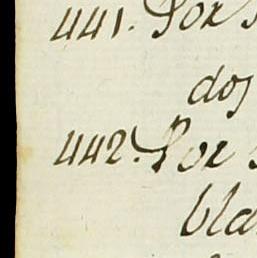 441. Por
dos
442. Por
bla